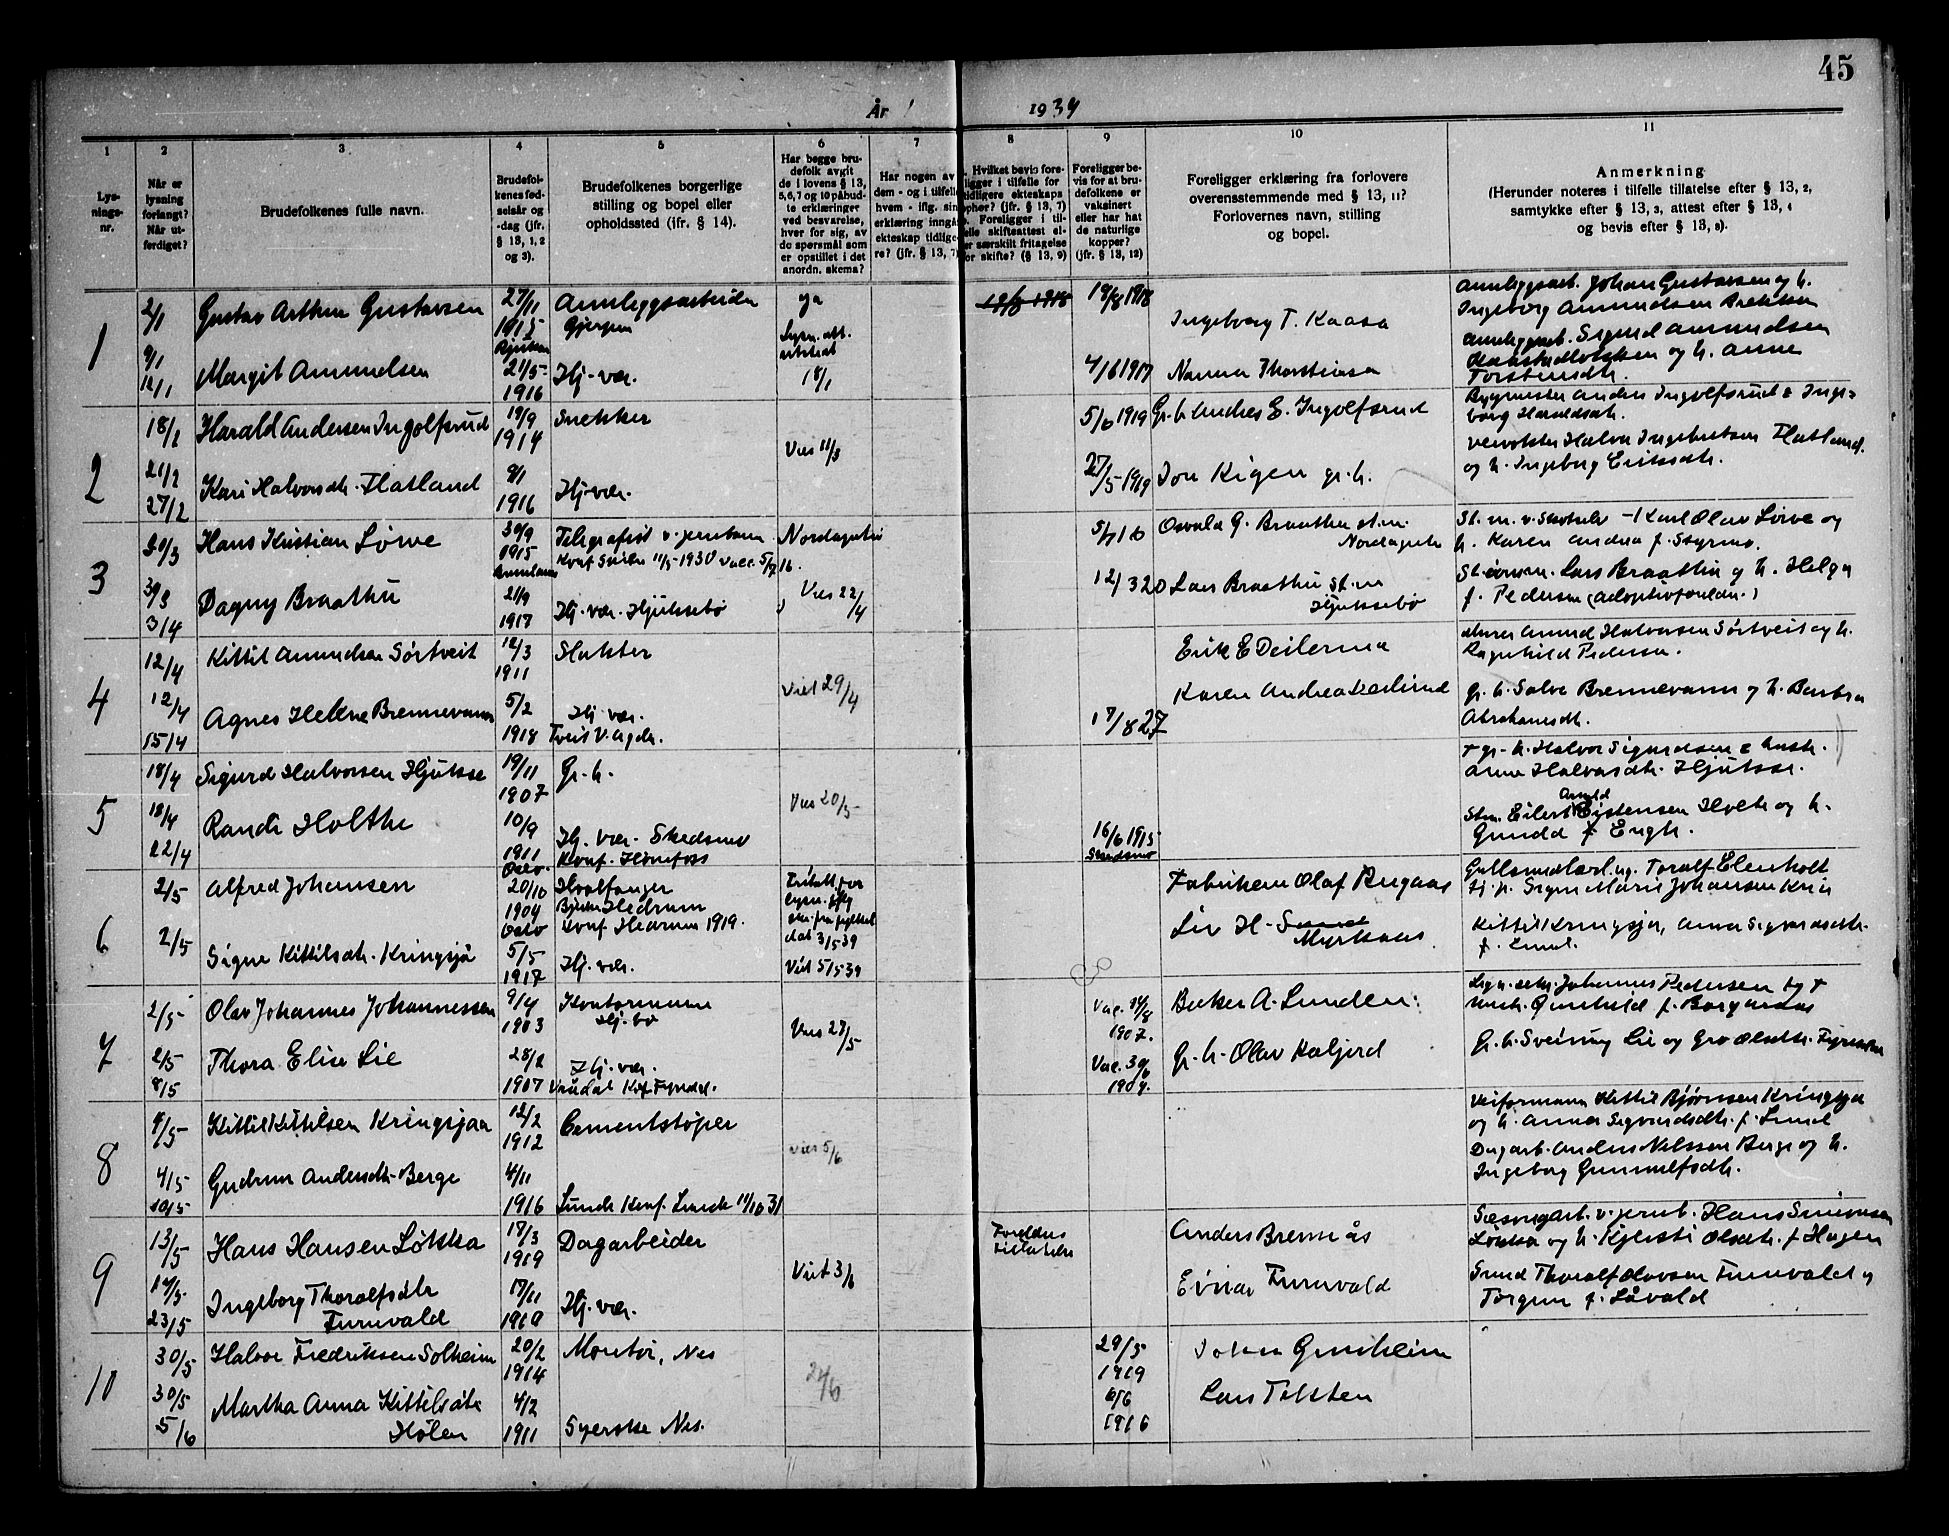 45
År 1939
1 2 3 4 5 6 7 8 9 10 11
Lysningsnr.
Når er lysning forlangt? Når utferdiget?
Brudefolkenes fulle navn.
Brudefolkenes fødselsår og -dag (jfr. § 13, 1, 2 og 3).
Brudefolkenes borgerlige stilling og bopel eller opholdssted (jfr. § 14).
Har begge brudefolk avgit de i lovens § 13, 5, 6, 7 og 10 påbudte erklæringer ved besvarelse, hver for sig, av de spørsmål som er opstillet i det anordn. skema?
Har nogen av dem - og i tilfelle hvem - iflg. sin erklæring inngått ekteskap tidligere? (jfr. § 13, 7)
Hvilket bevis foreligger i tilfelle for tidligere ekteskaps ophør? (jfr. § 13, 7) Foreligger i tilfelle skifteattest eller særskilt fritagelse for skifte? (§ 13, 9)
Foreligger bevis for at brudefolkene er vaksinert eller har hat de naturlige kopper? (jfr. § 13, 12)
Foreligger erklæring fra forlovere overensstemmende med § 13, 11? Forlovernes navn, stilling og bopel.
Anmerkning (Herunder noteres i tilfelle tillatelse efter § 13, 2, samtykke efter § 13, 3, attest efter § 13, 4 og bevis efter § 13, 8).
1
2/1
Gustav Arthur Gustavsen
27/11 1915
Anleggsarbeider
Gjerpen
ja
19/8 1918
Ingeborg T. Kaasa
Anleggsarb. Johan Gustavsen og h.
Ingeborg Amundsen
9/1
12/1
Margit Amundsen
21/5 1916
Hj. vær.
18/1
4/6 1917
Nanna Thorsteinsen
Anleggsarb. Sigurd Amundsen
og h. Anne
Torsteinsdtr.
2
18/2
Harald Andersen Ingolfsrud
19/9 1914
Snekker
Vies 11/3
5/6 1919
Gr. b. Andres E. Ingolfsrud
Bygmester Anders Ingolfsrud & Ingeborg Haraldsdtr.
21/2
27/2
Kari Halvorsdtr. Flatland
9/1 1916
Hj. vær.
27/5 1919
Jon Rigen gr. b.
Veivokter Halvor Ingebretsen Flatland
og h. Ingeborg Eriksdtr.
3
30/3
Hans Kristian Løwe
30/9 1915
Telegrafist v. jernbanen
Konf. Skien 11/5-1930 Vacc. 5/7 16.
Nordagutu
5/7 16
Osvald G. Braathu st.m.
Nordagutu
St. m. v. Skotselv - Karl Olav Løwe og
h. Karen Andrea f. Styrmo.
30/3
3/4
Dagny Braathu
21/9 1917
Hj. vær. Hjuksebø
Vies 22/4
12/3 20
Lars Braathu st.m
Hjuksebø
Lars Braathu og h. Helga
f. Pedersen (adoptivforeldre.)
4
12/4
Kittil Amundsen Sørtveit
12/3 1911
Slakter
Viet 29/4
Erik E Deilerma
Amund Halvorsen Sørtveit og h.
Ragnhild Pedersen.
12/4
15/4
Agnes Helene Brennevann
5/2 1918
Hj. vær.
Tveit V. Agder.
17/8 27
Karen Andrea
Gr. b. Salve Brennevann og h. Barbra
Abrahamsdtr.
5
18/4
Sigurd Halvorsen Hjukse
19/11 1907
Gr. b.
Vies 20/5
+ gr. b. Halvor Sigurdsen & hustr.
Anne Halvorsdtr. Hjukse.
18/4
22/4
Randi Holthe
10/9 1911
Hj. vær. Skedsmo
Konf. Hønefoss
16/6 1915
Skedsmo
Stm. Eilert Arnold Eystensen Holthe og h.
Gunda f. Engh.
6
2/5
Alfred Johansen
Oslo
20/10 1904
Hvalfanger
Hedrum
Konf Hedrum 1919.
dat 3/5 39
Fabrikeier Olaf Aagaas
Gullsmedlærl. ug. Toralf Elenholt
tj. p. Signe Marie Johansen
2/5
Signe Kittilsdtr. Kringsjå
Oslo
5/5 1917
Hj. vær.
Viet 5/5 39
Liv H. Sund
Myrkaas.
Kittil Kringsjå, Anna Sigvardsdtr.
f. Lund.
7
2/5
Olav Johannes Johannessen
9/4 1903
Kontormann
Hj. bø
Vies 27/5
Vac. 14/8 1907.
Baker A. Lunden.
Johannes Pedersen og +
hust. Gunhild f. Borgersaas
2/5
8/5
Thora Elise Lie
28/2 1907
Hj. vær.
Vrådal Kof Fyresdal.
Vac. 30/6 1909.
Gr. b. Olav Kaljord
Gr. b. Sveinung Lie og Gro Olsdtr. Fyresdal
8
4/5
Kittil Kittilsen Kringsjaa
12/2 1912
Cementstøper
vies 5/6
Veiformann Kittil Bjørnsen Kringsjå
og h. Anna Sigvardsdtr. f. Lund
4/5
10/5
Gudrun Andersdtr. Berge
4/11 1916
Lunde Konf. Lunde 11/10 31
Dagarb. Anders Nilssen Berge og h.
Ingeborg Gunnulfsdtr.
9
13/5
Hans Hansen Løkka
17/3 1919
Dagarbeider
Viet 3/6
Foreldres tillatelse
Anders Brennås
Sesongarb. v. jernb. Hans Simonsen
Løkka og h. Kjersti Olsdtr. f Hagen
17/5
23/5
Ingeborg Thoralfsdtr
Furuvald
17/11 1919
Hj. vær.
Einar Furuvald
Smed Thoralf Olavsen Furuvald og
Torgun f. Låvald
10
30/5
Halvor Fredriksen Solheim
20/2 1914
Montør, Nes
24/6
29/5 1919
Johan Grasheim
30/5
5/6
Martha Anna Kittilsdtr
Hølen
4/2 1911
Syerske Nes.
6/6 1916
Lars Teksten